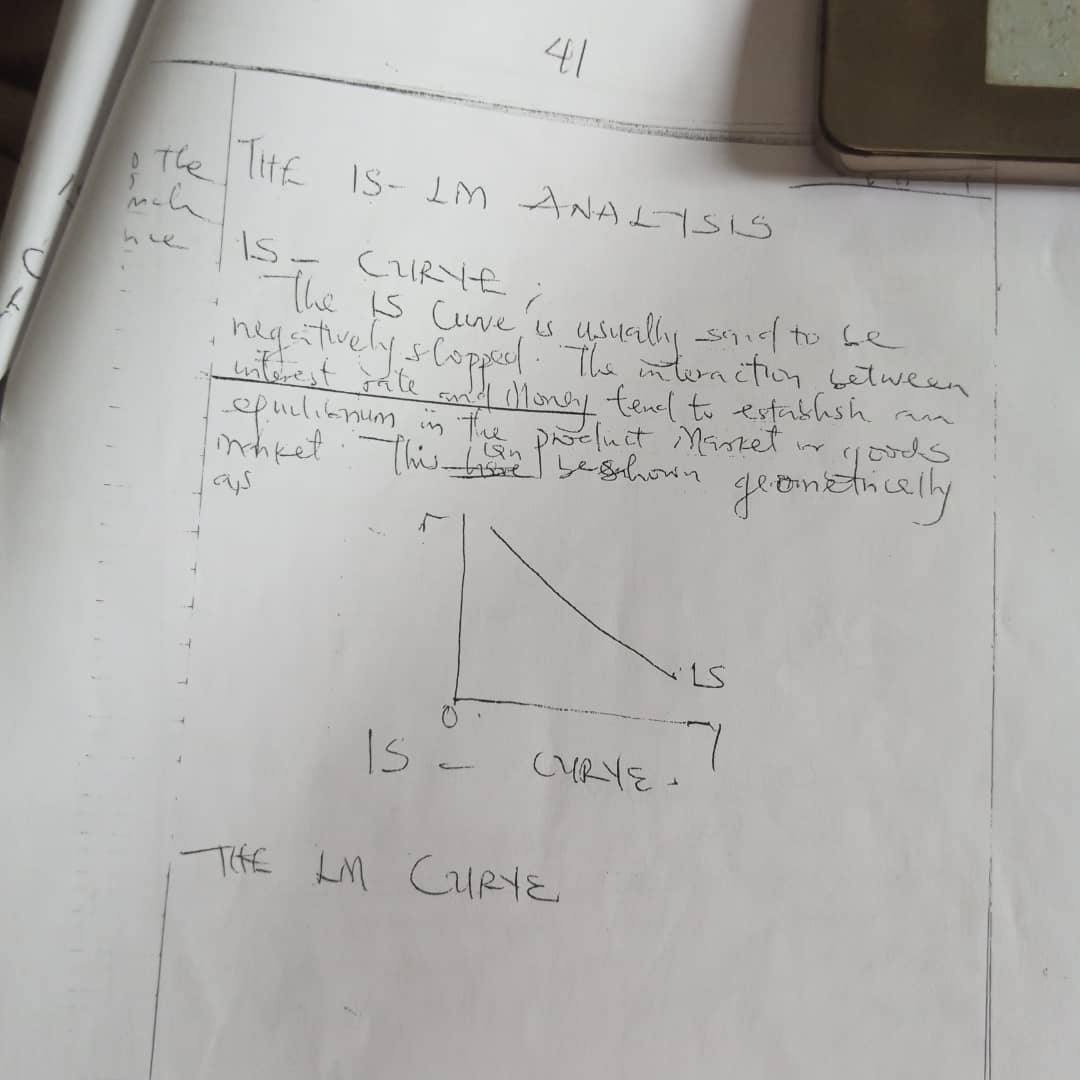 41
the
THE IS - LM ANALYSIS
IS - CURVE;
The IS Curve is usually said to be
negatively slopped. The interaction between
interest rate and Money tend to establish an
equilibrium in the product Market or goods
market. This can be shown geometrically
as
r
IS
O
Y
IS - CURVE.
THE LM CURVE